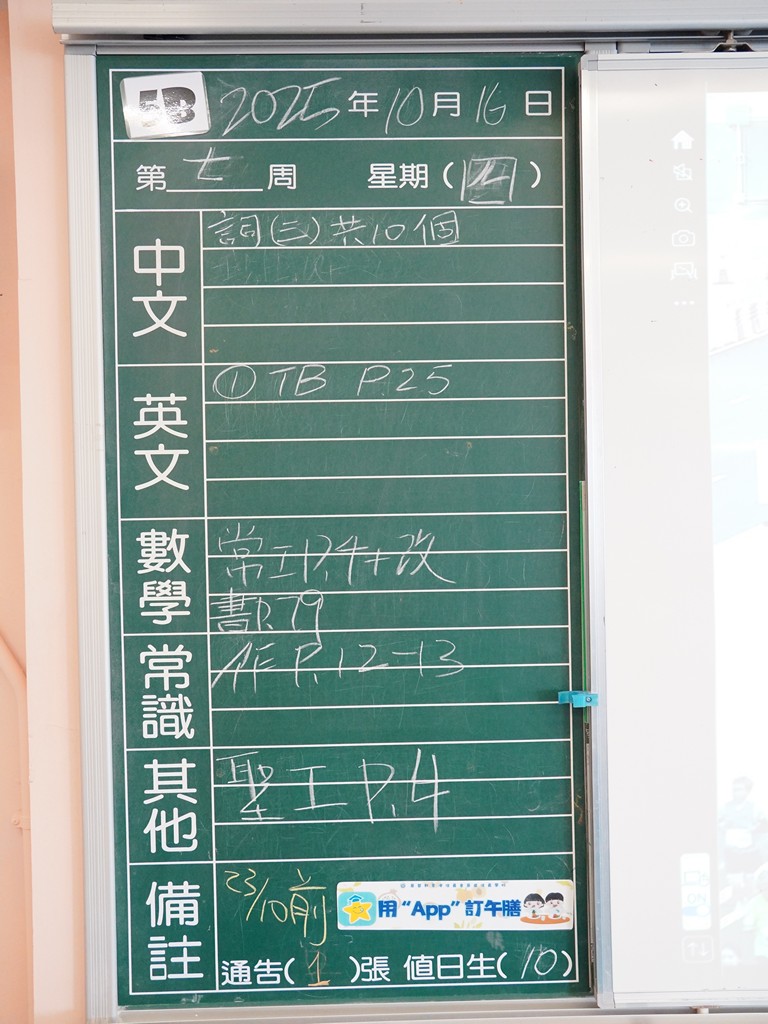 5B 2025年10月16日
第七周 星期(四)
中文
詞(三)共10個
英文
① TB P.25
數學
常工P.4+改
書P.79
常識
作P.12-13
其他
聖工P.4
備註
23/10前
用“App”訂午膳
通告(1)張 值日生(10)